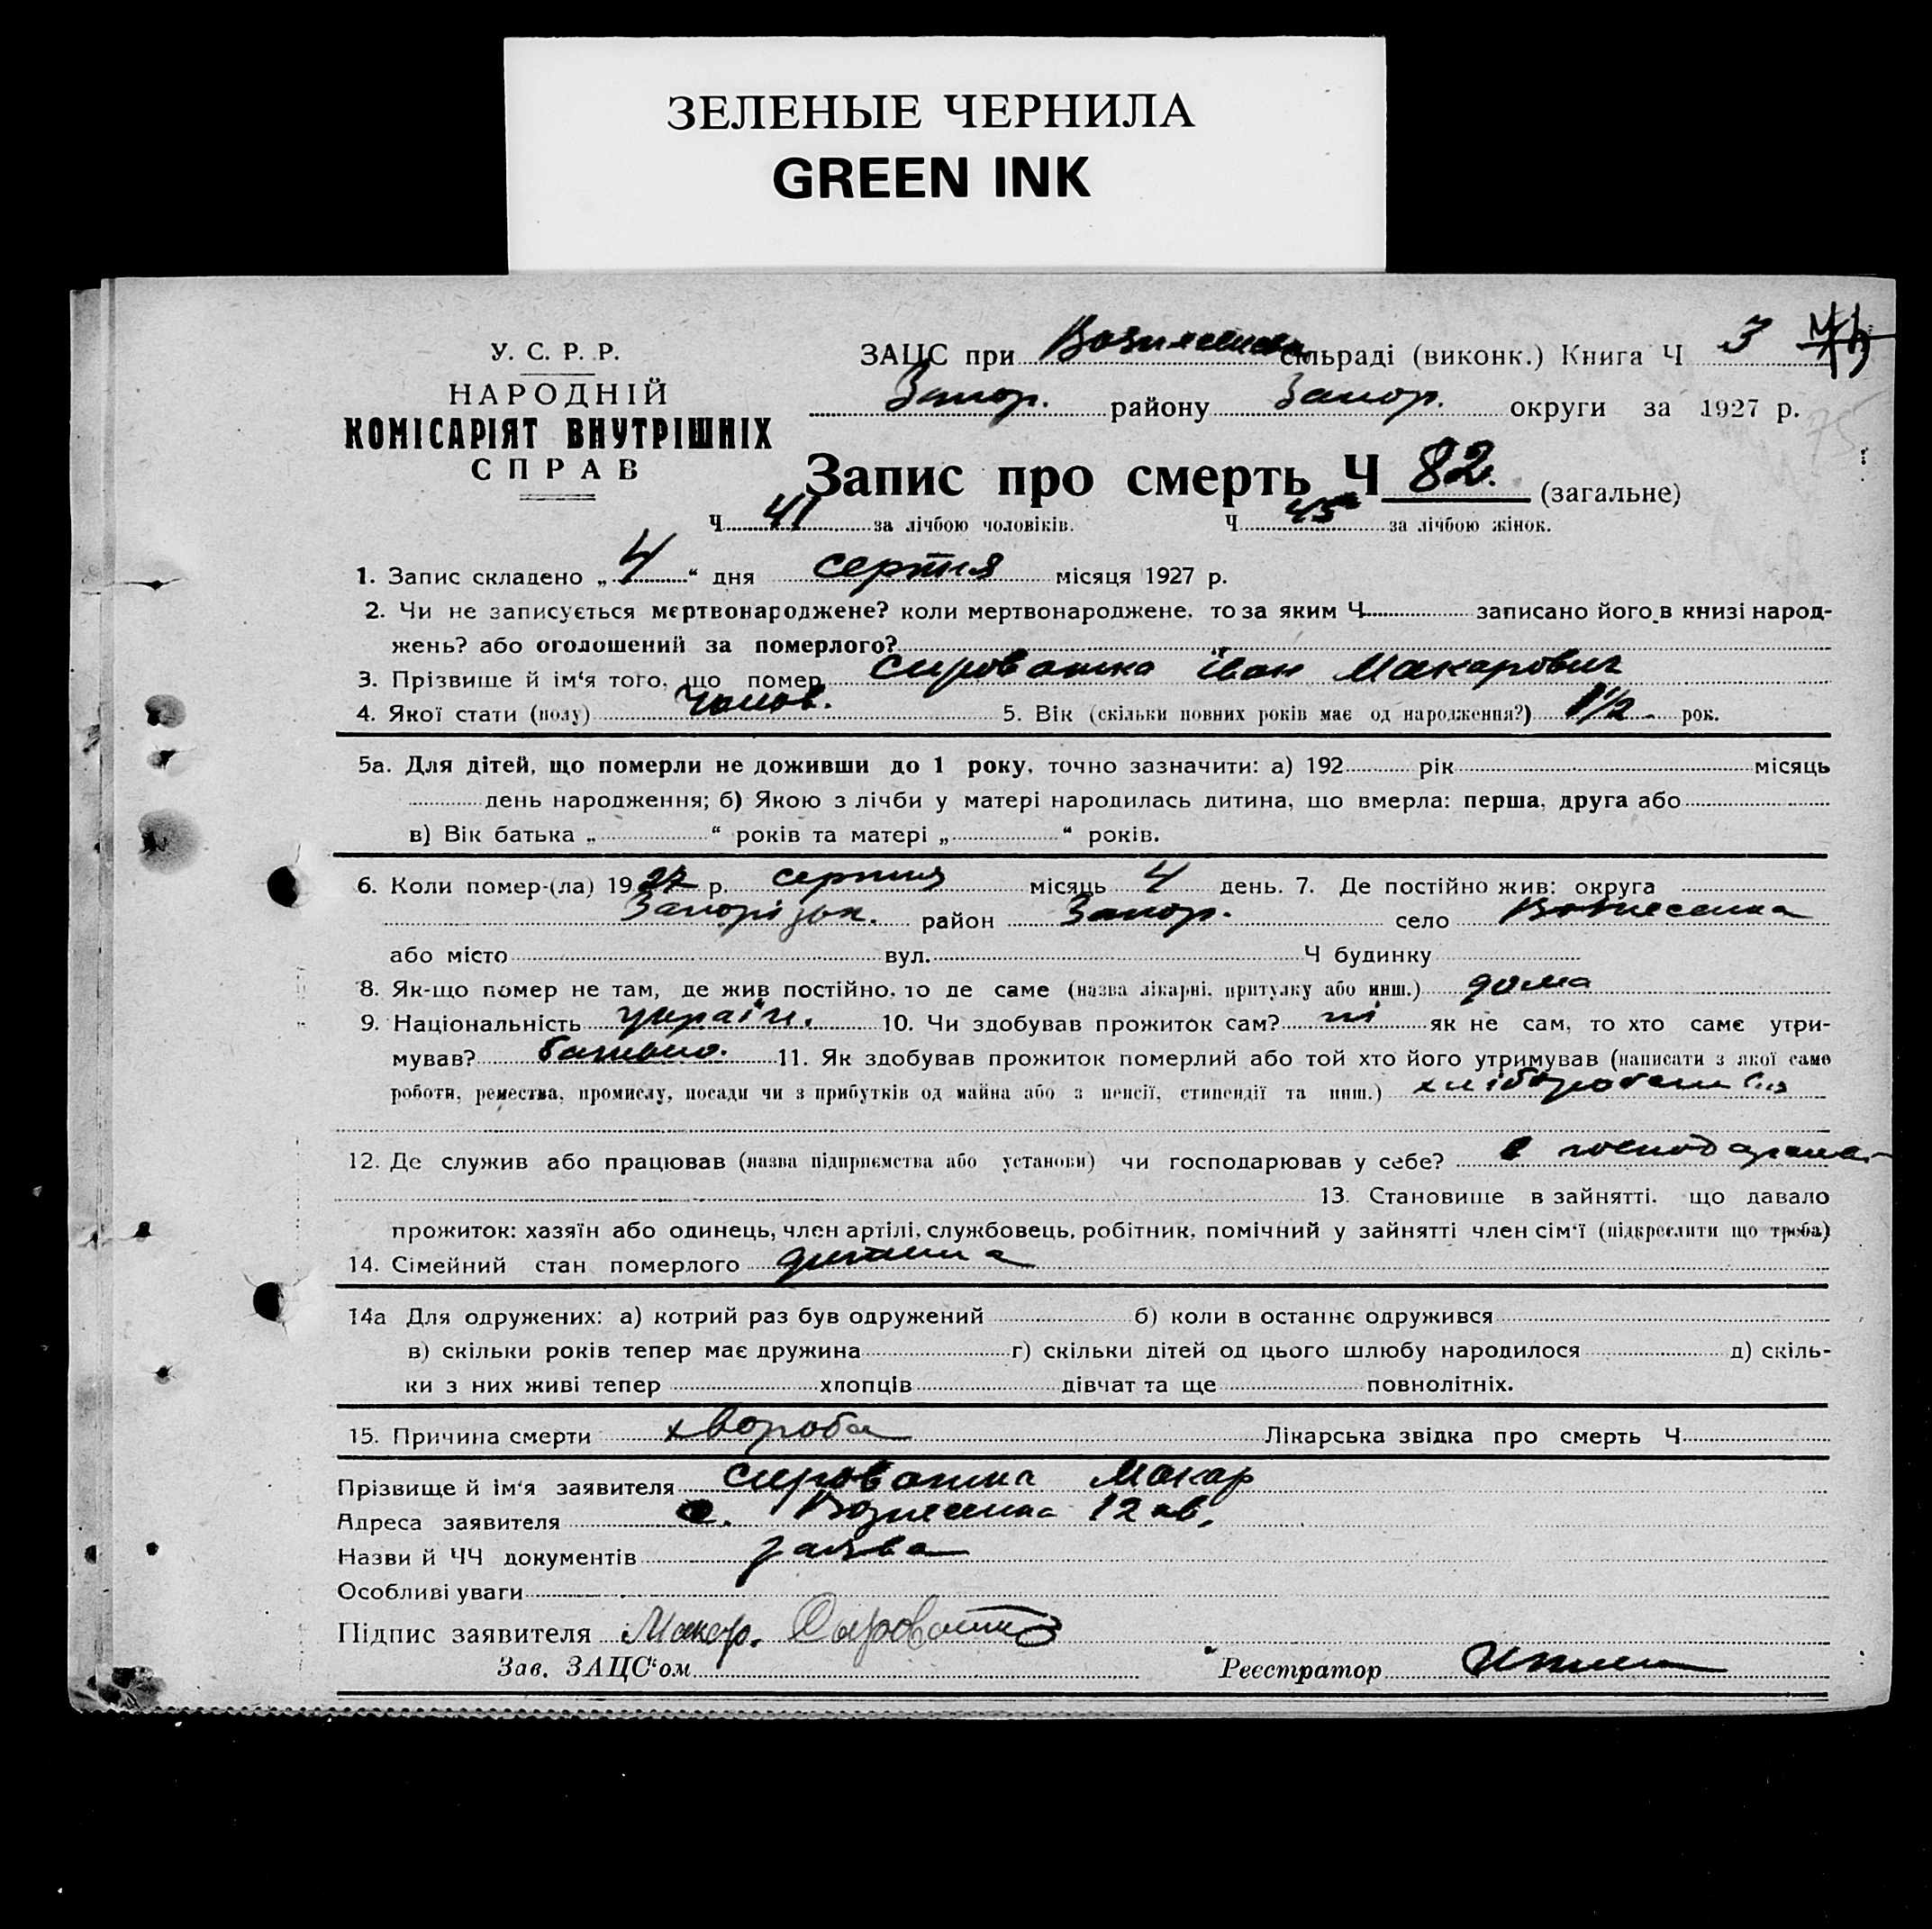 ЗЕЛЕНЫЕ ЧЕРНИЛА
GREEN INK
У. С. Р. Р.
НАРОДНІЙ
КОМІСАРІЯТ ВНУТРІШНІХ
СПРАВ
ЗАЦС при Вознесенск сільраді (виконк.) Книга Ч 3
Запор. району Запор. округи за 1927 р.
75
Запис про смерть Ч 82. (загальне)
Ч 41 за лічбою чоловіків. Ч 45 за лічбою жінок.
1. Запис складено „ 4 “ дня серпня місяця 1927 р.
2. Чи не записується мертвонароджене? коли мертвонароджене, то за яким Ч записано його в книзі народ-
жень? або оголошений за померлого?
3. Прізвище й ім‘я того, що помер Сироватка Іван Макарович
4. Якої стати (полу) Чолов. 5. Вік (скільки повних років має од народження?) 1 1/2 рок.
5а. Для дітей, що померли не доживши до 1 року, точно зазначити: а) 192 рік місяць
день народження; б) Якою з лічби у матері народилась дитина, що вмерла: перша, друга або
в) Вік батька „ “ років та матері „ “ років.
6. Коли помер-(ла) 1927 р. серпня місяць 4 день. 7. Де постійно жив: округа
Запорізьк. район Запор. село Вознесенка
або місто вул. Ч будинку
8. Як-що помер не там, де жив постійно, то де саме (назва лікарні, притулку або инш.) дома
9. Національність україн. 10. Чи здобував прожиток сам? ні як не сам, то хто саме утри-
мував? батько. 11. Як здобував прожиток померлий або той хто його утримував (написати з якої саме
роботи, ремества, промислу, посади чи з прибутків од майна або з пенсії, стипендії та инш.)
12. Де служив або працював (назва підприємства або установи) чи господарював у себе?
13. Становище в зайнятті, що давало
прожиток: хазяїн або одинець, член артілі, службовець, робітник, помічний у зайнятті член сім‘ї (підкреслити що треба)
14. Сімейний стан померлого дитина
14а Для одружених: а) котрий раз був одружений б) коли в останнє одружився
в) скільки років тепер має дружина г) скільки дітей од цього шлюбу народилося д) скіль-
ки з них живі тепер хлопців дівчат та ще повнолітніх.
15. Причина смерти хвороба Лікарська звідка про смерть Ч
Прізвище й ім‘я заявителя Сироватка Макар
Адреса заявителя с. Вознесенка 12 кв.
Назви й ЧЧ документів заява
Особливі уваги
Підпис заявителя Макар. Сыроватко
Зав. ЗАЦС‘ом Реєстратор